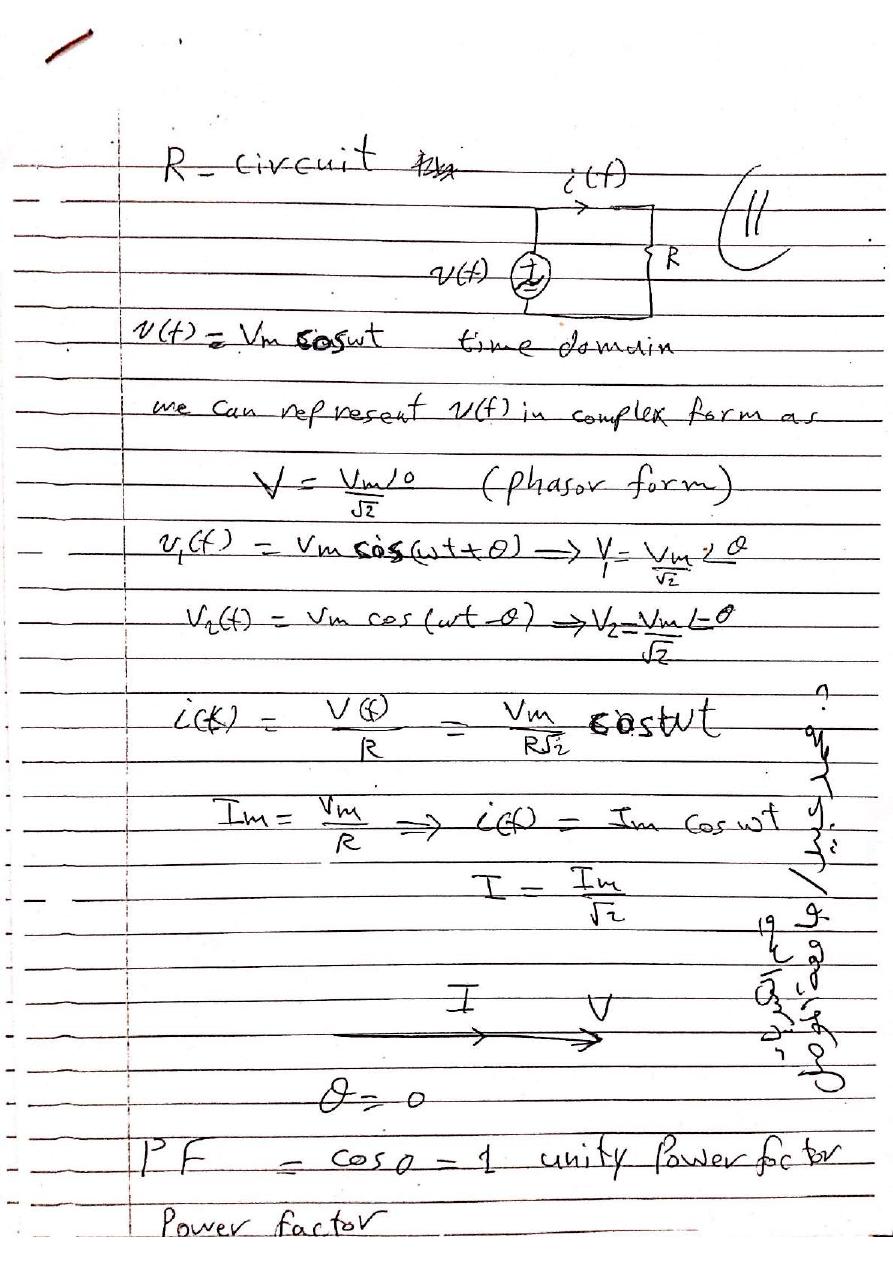 R - circuit
i(t)
11
v(t)
R
v(t) = Vm cosωt time domain
we can represent v(t) in complex form as
V = Vm∠0/√2 (phasor form)
v₁(t) = Vm cos(ωt+θ) ⟹ V₁ = Vm/√2 ∠θ
V₂(t) = Vm cos(ωt-θ) ⟹ V₂ = Vm/√2 ∠-θ
i(t) = V(t)/R = Vm/R√2 cosωt
Im = Vm/R ⟹ i(t) = Im cosωt
I = Im/√2
I V
θ = 0
PF = cos0 = 1 unity Power factor
Power factor